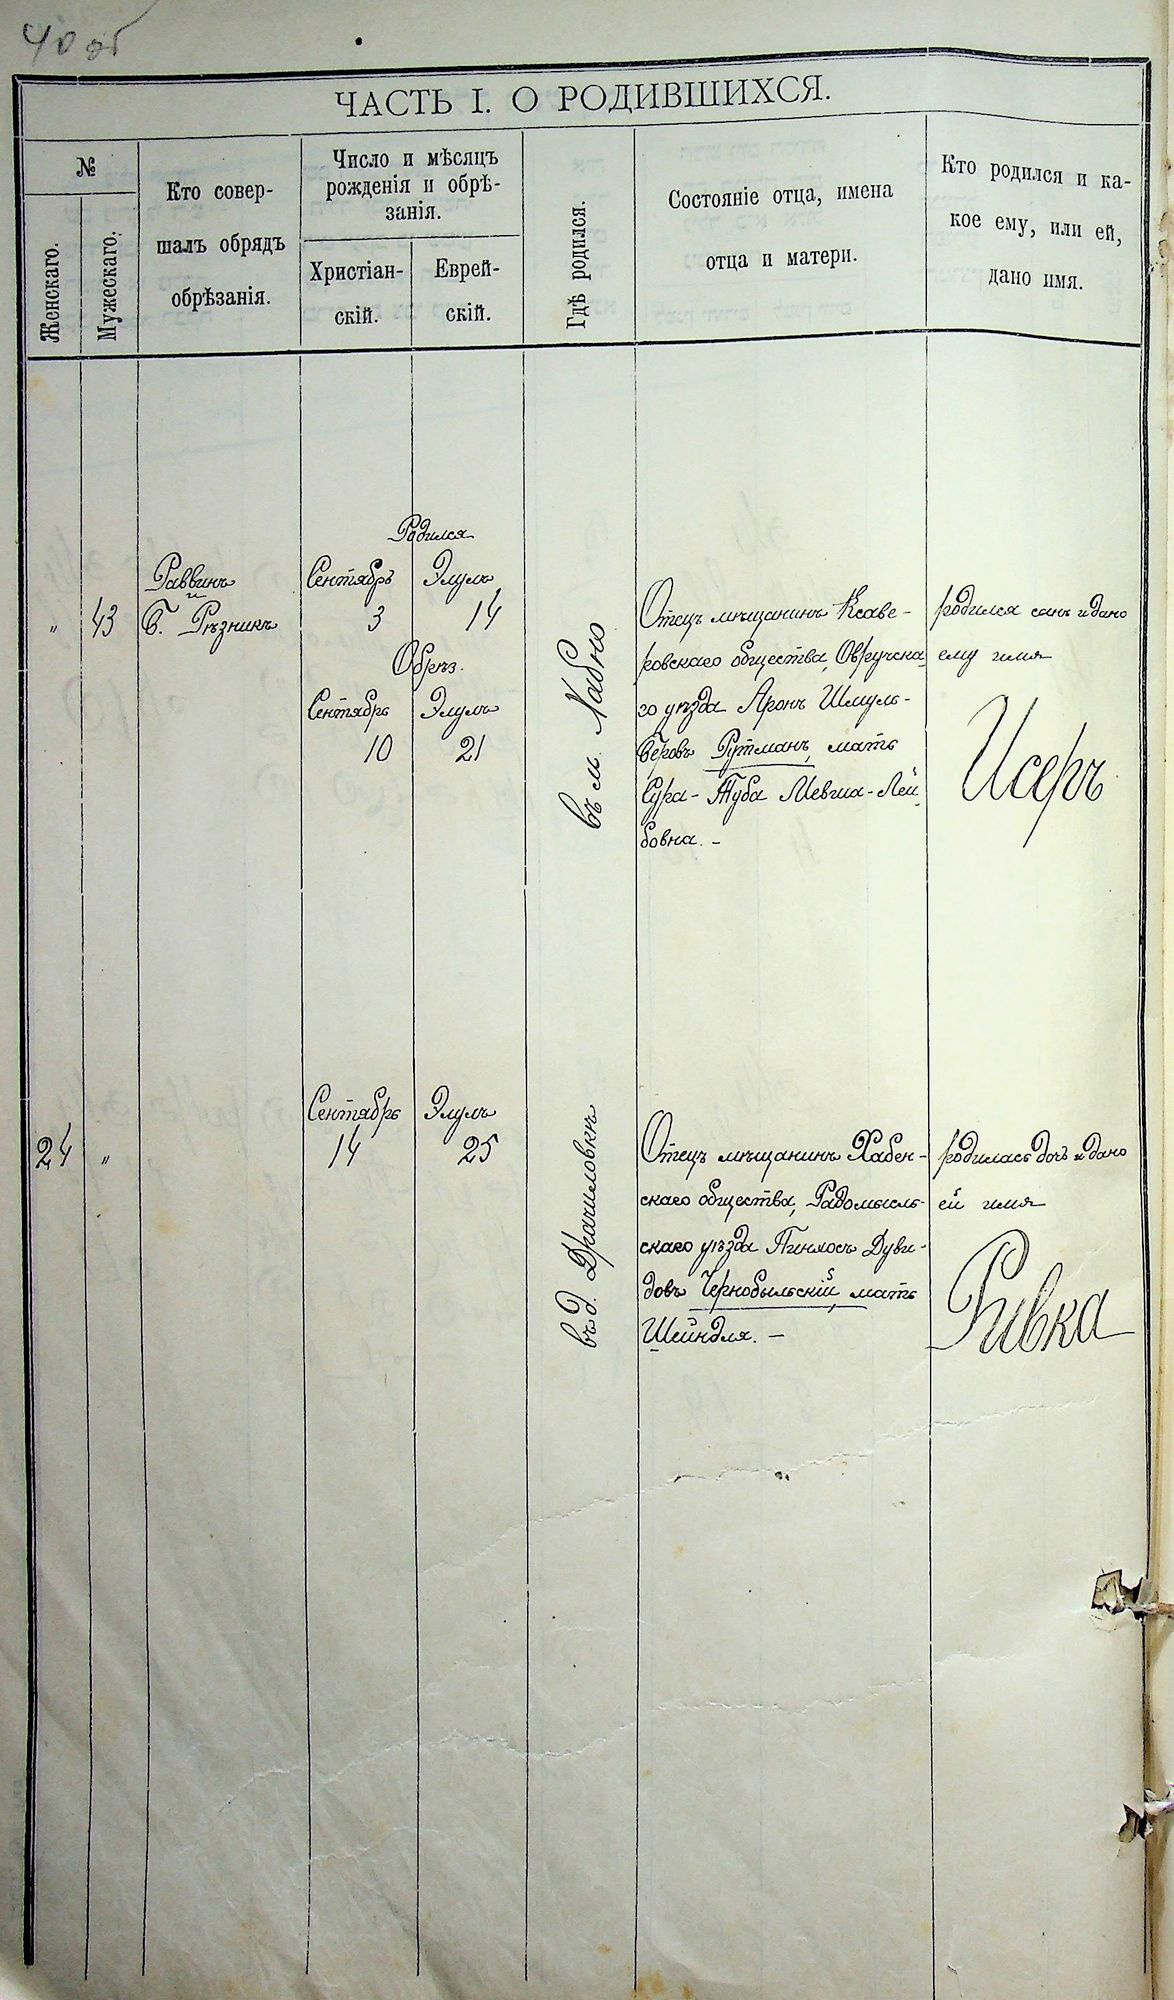 40 об
ЧАСТЬ I. О РОДИВШИХСЯ.
№
Женскаго.
Мужескаго.
Кто совер-
шалъ обрядъ
обрѣзанія.
Число и мѣсяцъ
рожденія и обрѣ-
занія.
Христіан-
скій.
Еврей-
скій.
Гдѣ родился.
Состояніе отца, имена
отца и матери.
Кто родился и ка-
кое ему, или ей,
дано имя.
"
43
Раввинъ
и
Б. Рѣзникъ
Родился
Сентябрь Элулъ
3 14
Обрѣз.
Сентябрь Элулъ
10 21
въ м. Хабно
Отецъ мѣщанинъ Ксаве-
ровскаго общества, Овручска
го уѣзда Аронъ Шмуль-
Беровъ Рутманъ, мать
Сура-Туба Мевша-Лей
бовна. -
родился сынъ и дано
ему имя
Исеръ
24
"
Сентябрь Элулъ
14 25
въ д.
Отецъ мѣщанинъ Хабен-
скаго общества, Радомысль-
скаго уѣзда Пинхосъ Дуви-
довъ Чернобыльскій, мать
Шейндля. -
родилась дочь и дано
ей имя
Ривка